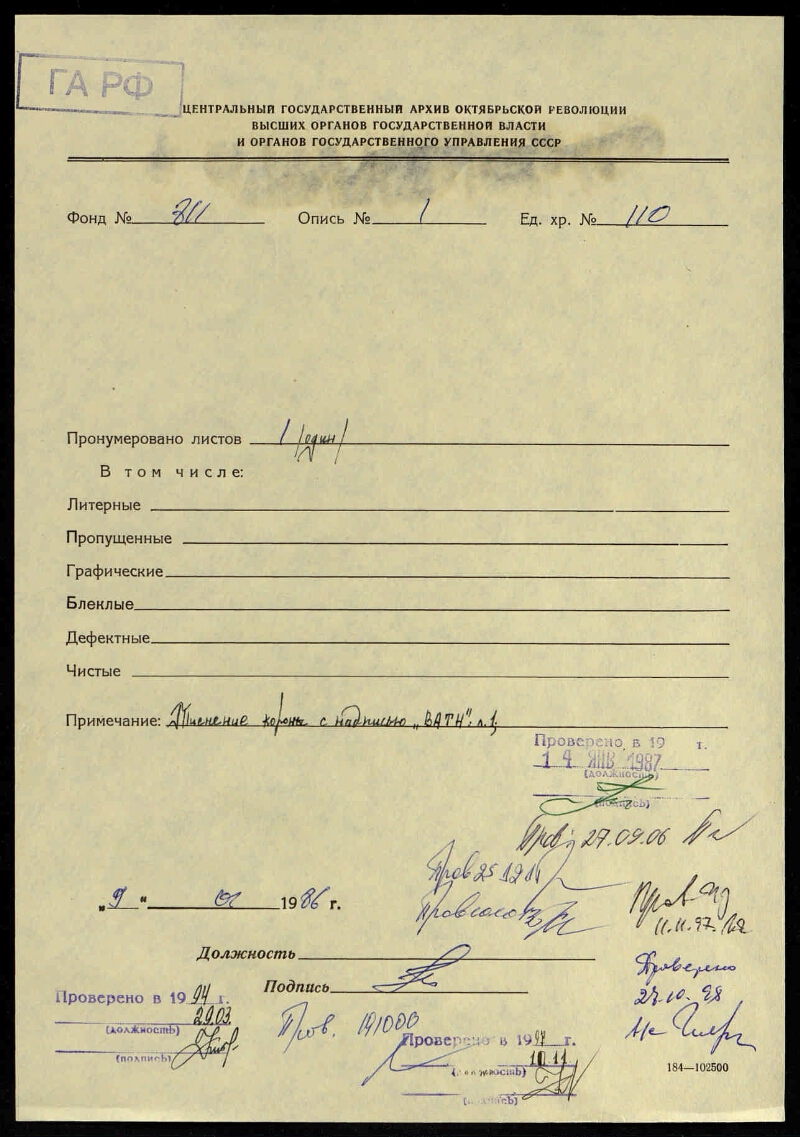 ГА РФ
ЦЕНТРАЛЬНЫЙ ГОСУДАРСТВЕННЫЙ АРХИВ ОКТЯБРЬСКОЙ РЕВОЛЮЦИИ
ВЫСШИХ ОРГАНОВ ГОСУДАРСТВЕННОЙ ВЛАСТИ
И ОРГАНОВ ГОСУДАРСТВЕННОГО УПРАВЛЕНИЯ СССР
Фонд № 811 Опись № 1 Ед. хр. № 110
Пронумеровано листов 1 /один/
В том числе:
Литерные
Пропущенные
Графические
Блеклые
Дефектные
Чистые
Примечание: Тиснение короны с надписью „BATH" л.1
Проверено в 19 г.
14 ЯНВ 1987
(должность)
(подпись)
Пров. 27.09.06
Пров 25 12
„9" 1986 г.
11.11.97.
Должность
Проверено
27.10.98
Подпись
Проверено в 1994 г.
29.03.
(должность)
(подпись)
Пров. 191000
Проверено в 1997 г.
10.11
(должность)
(подпись)
184—102500